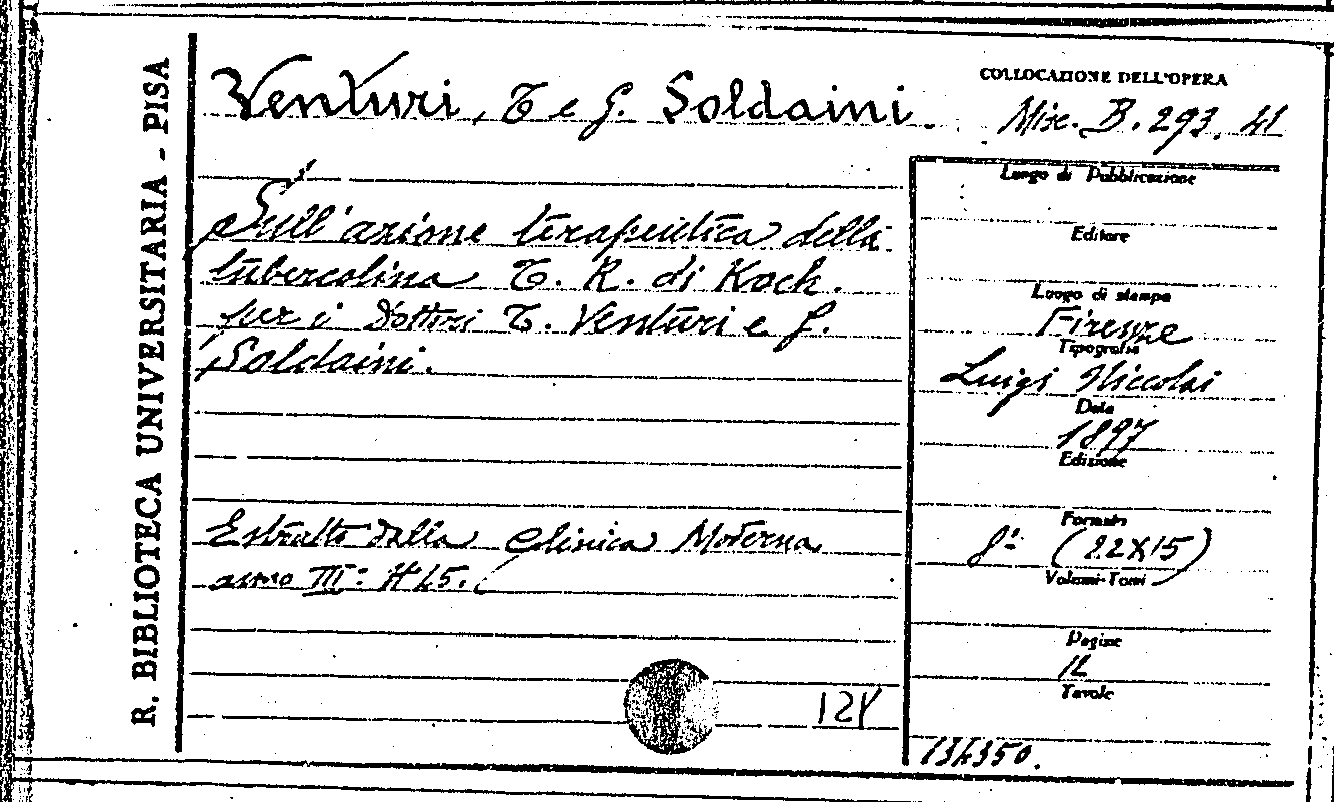 R. BIBLIOTECA UNIVERSITARIA - PISA
Venturi, T e G. Soldaini.
COLLOCAZIONE DELL'OPERA
Misc. B. 293. 41
Sull'azione terapeutica della
tubercolina T. R. di Koch.
per i Dottori T. Venturi e G.
Soldaini.
Estratto dalla Clinica Moderna
anno III° N° 15.
Luogo di Pubblicazione
Editore
Luogo di stampa
Firenze
Tipografia
Luigi Niccolai
Data
1897
Edizione
Formato
8° (22X15)
Volumi-Tomi
Pagine
12
Tavole
134350.